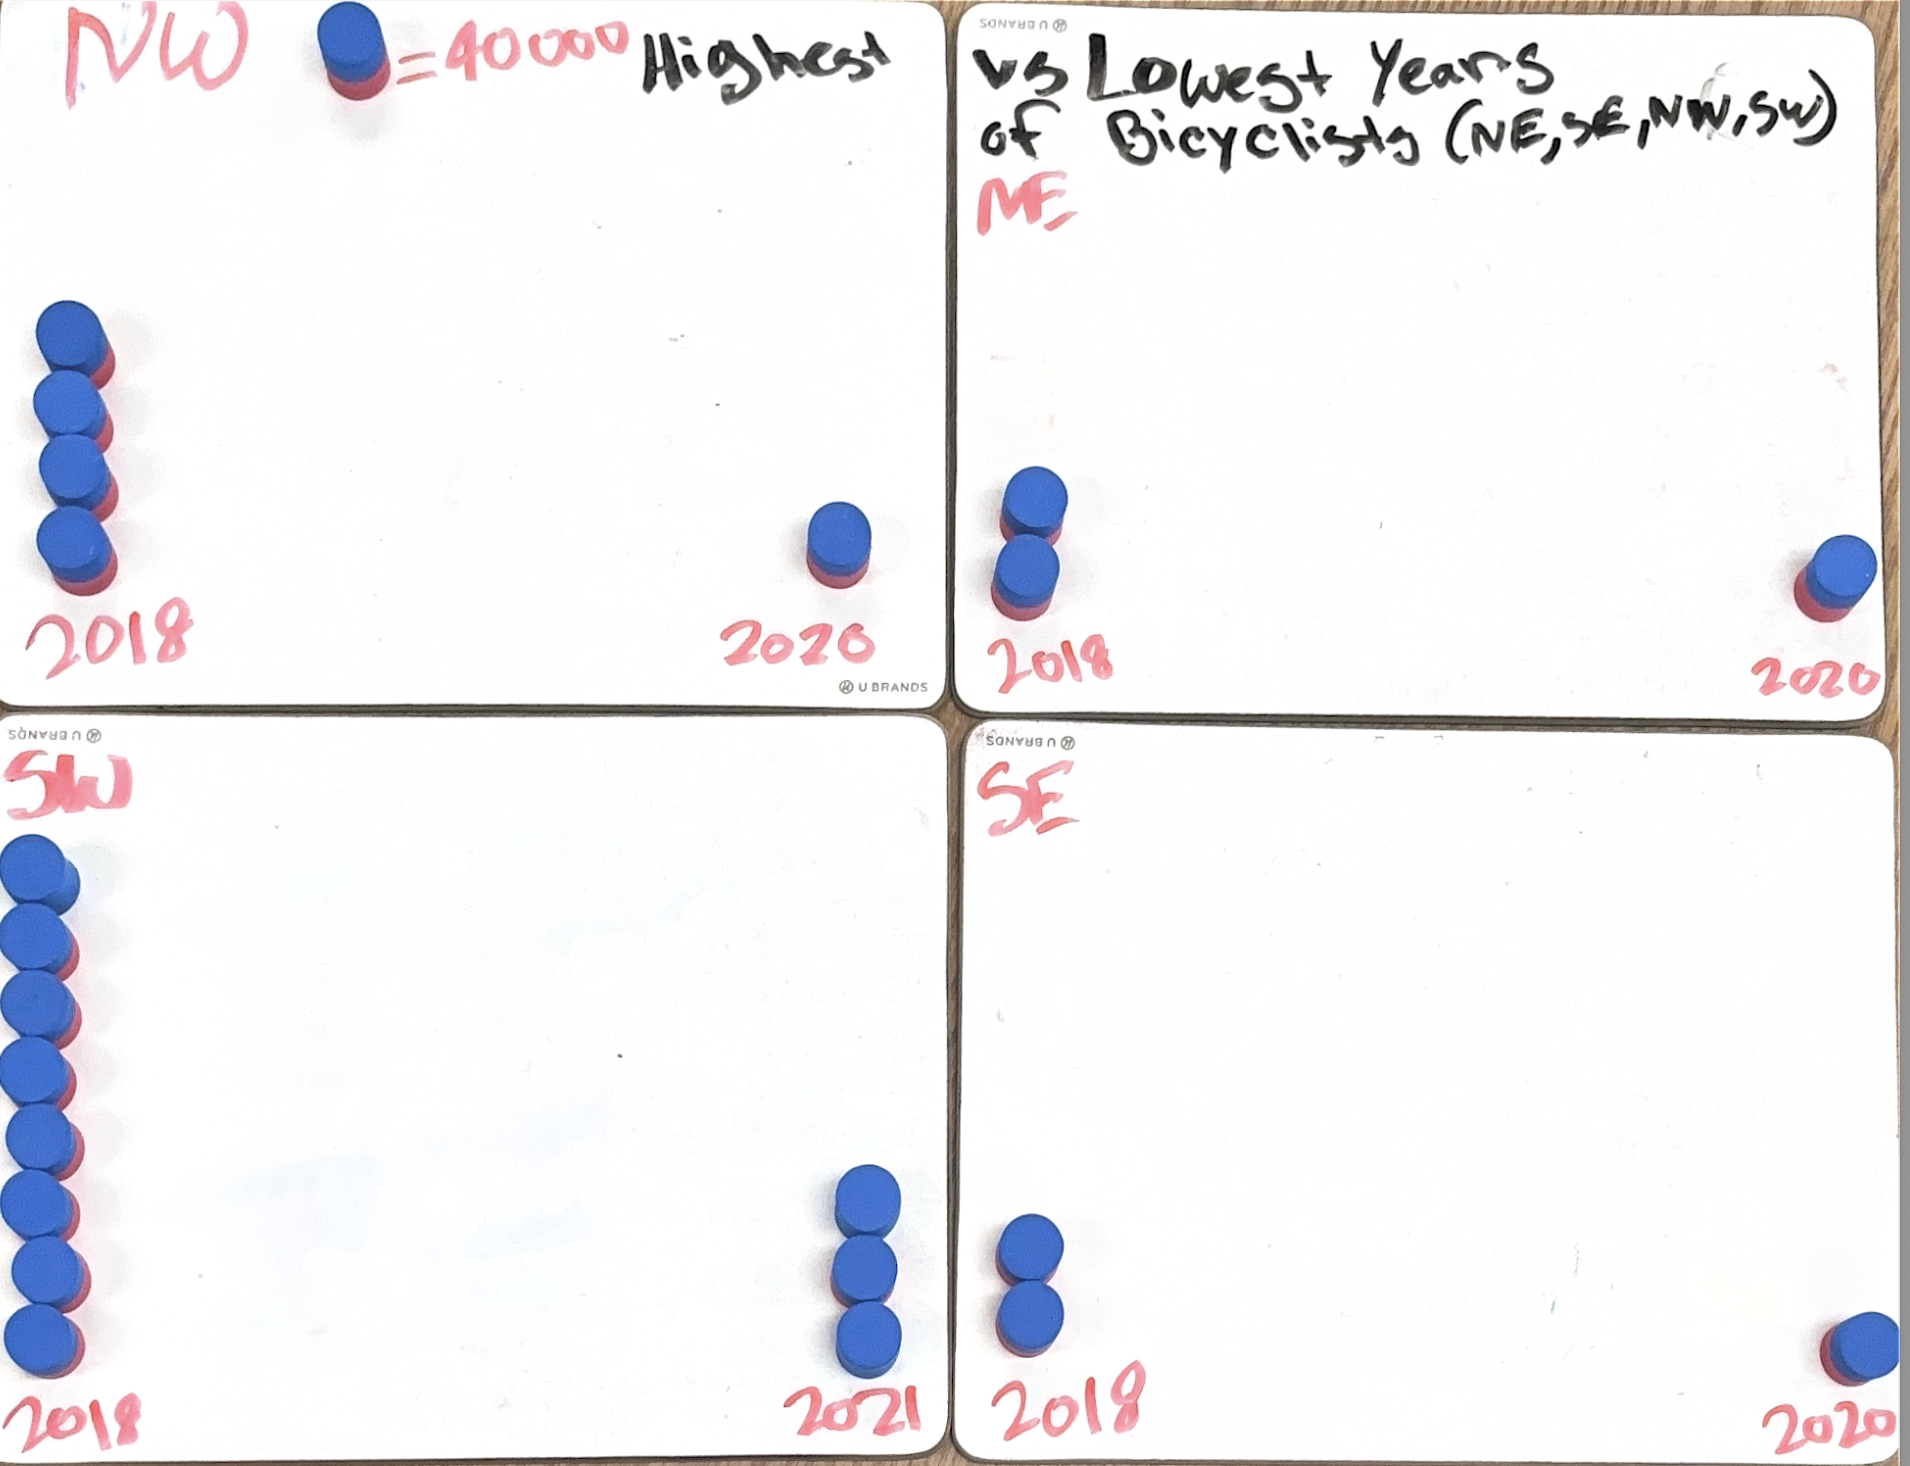 NW = 40000 Highest
U BRANDS
vs Lowest Years
of Bicyclists (NE, SE, NW, SW)
NE
2018 2020
U BRANDS
2018 2020
U BRANDS
SW
2018 2021
U BRANDS
SE
2018 2020